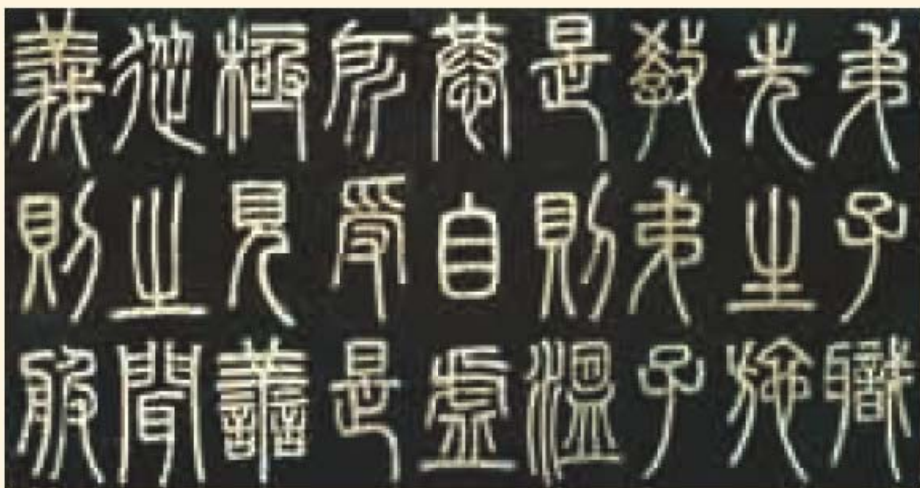 弟子職
先生施
教弟子
是則溫
恭自虛
所受是
極見譱
從之聞
義則服